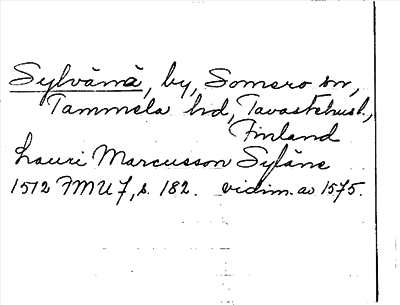 Sylvänä, by, Somero sn,
Tammela hd, Tavastehusl.,
Finland
Lauri Marcusson Syläne
1512 FMU 7, s. 182. vidim. av 1575.